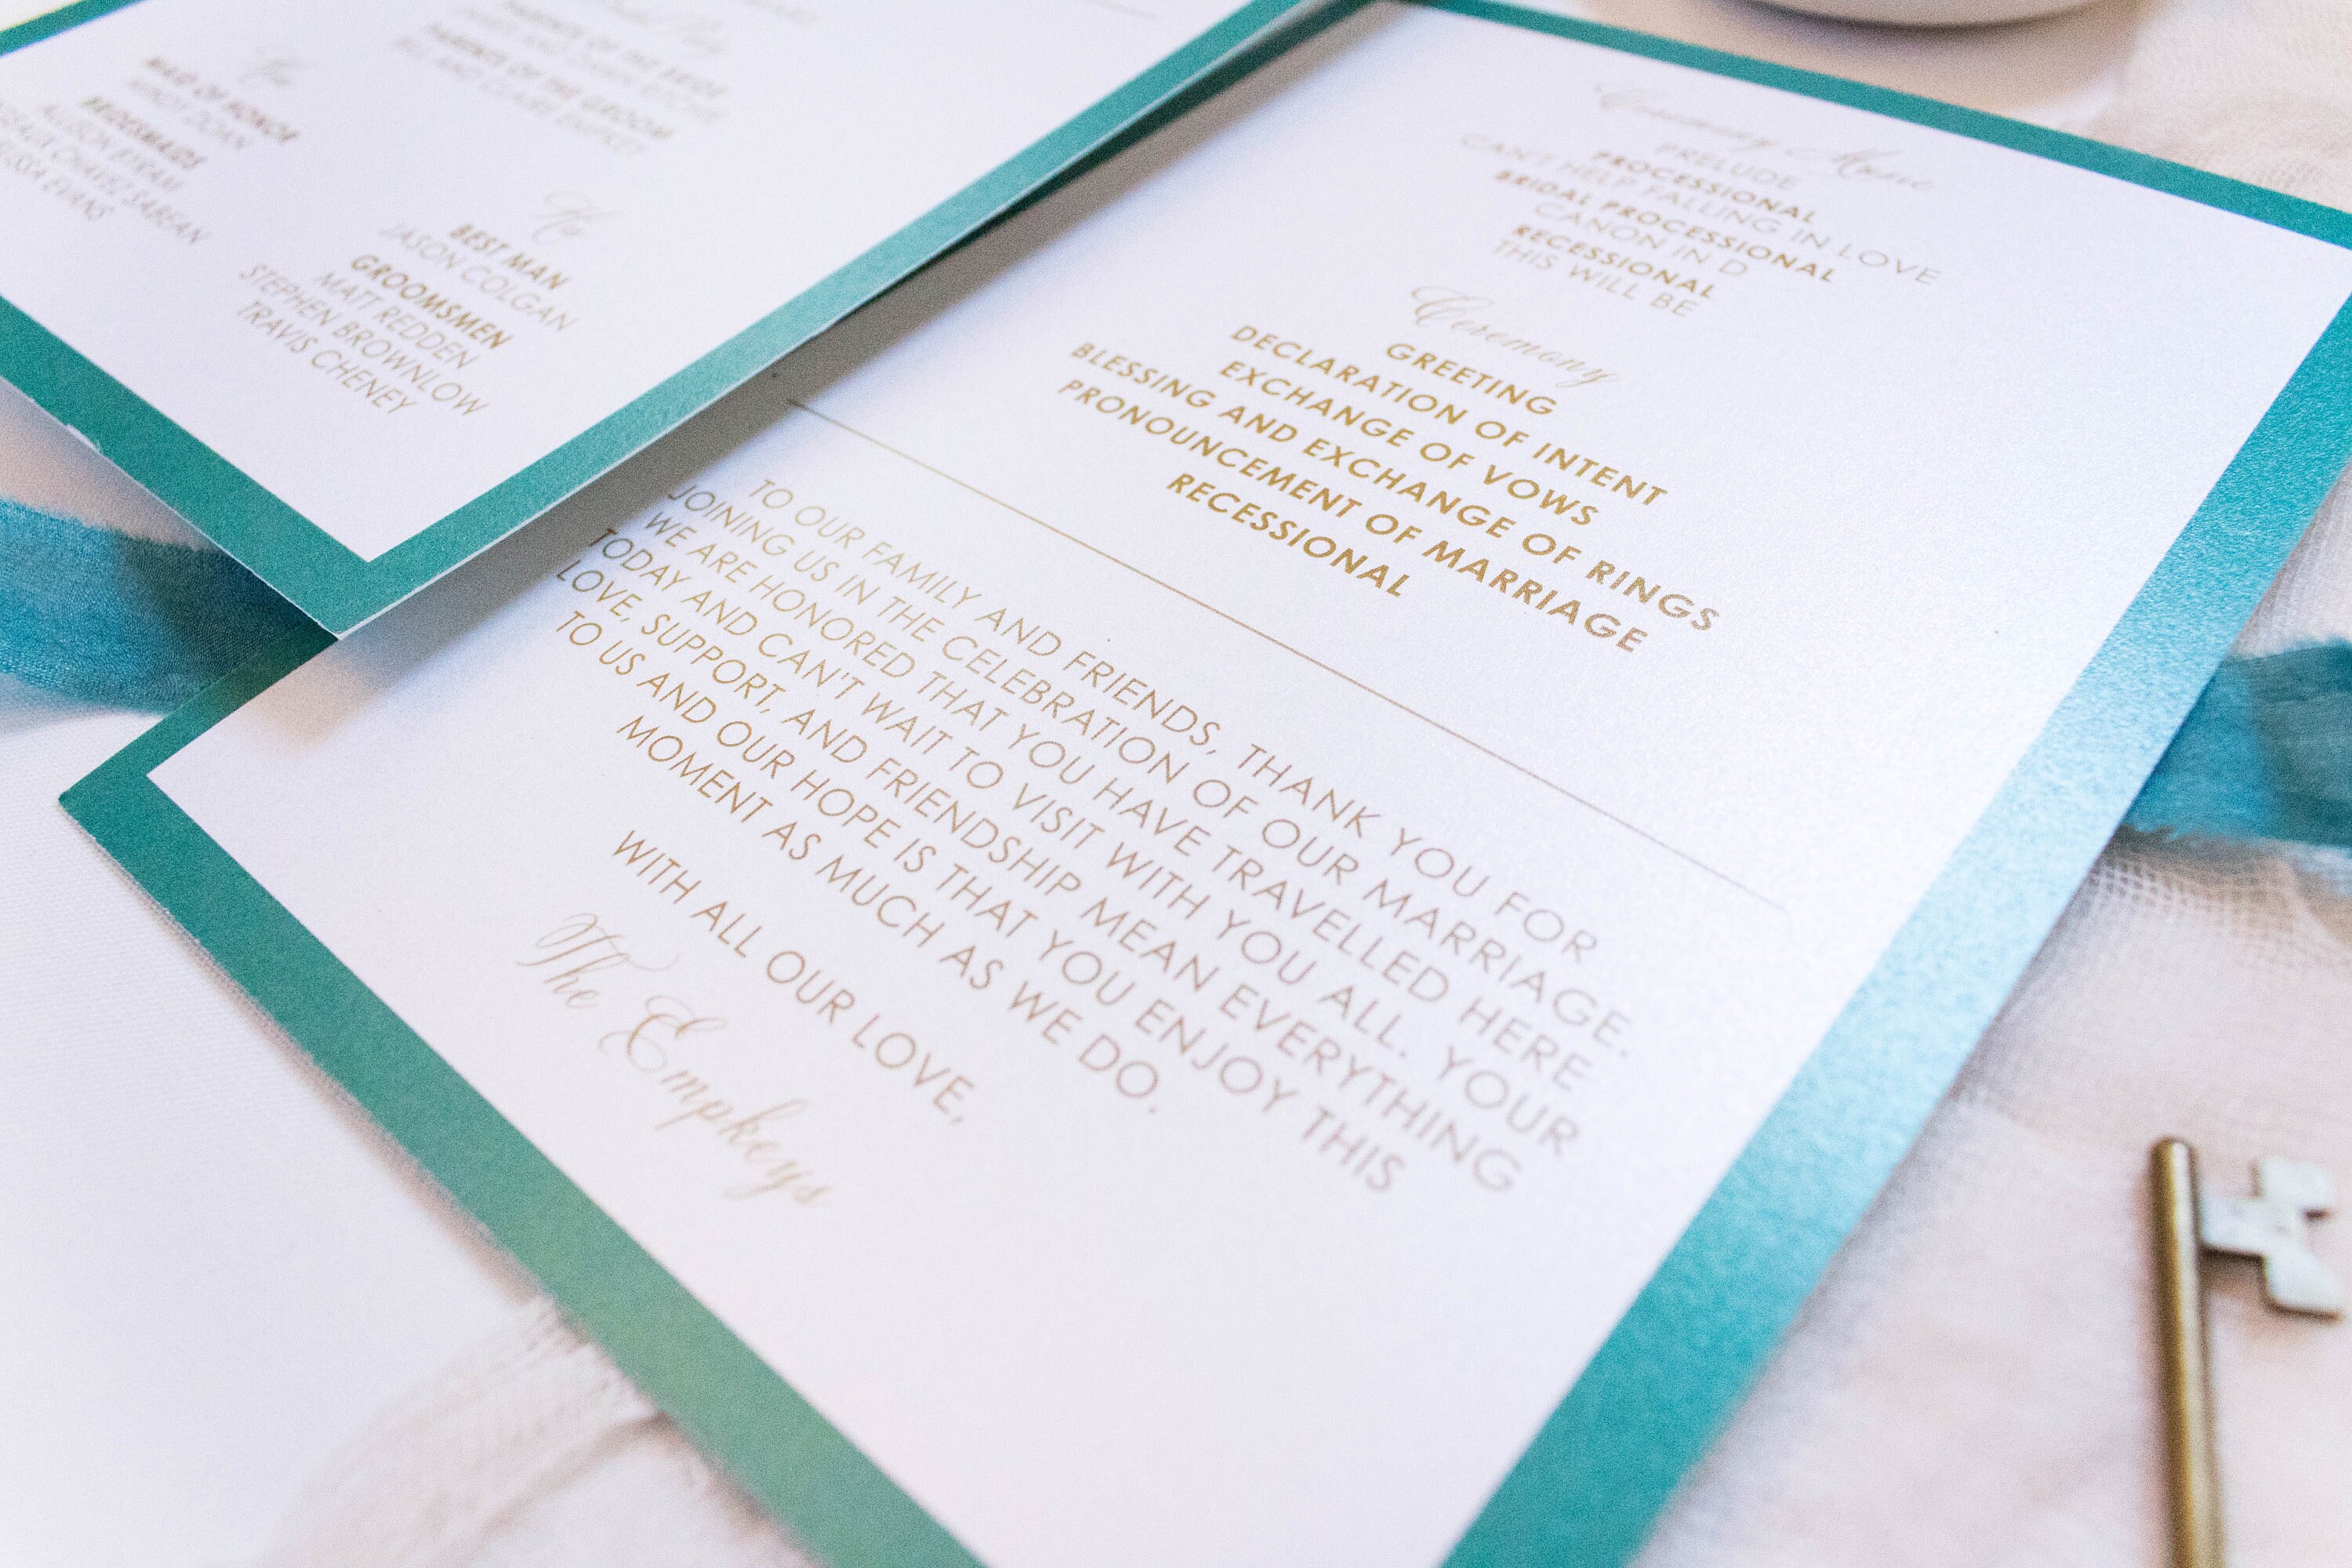 PARENTS OF THE BRIDE
PARENTS OF THE GROOM
BILL AND CLAIRE EMPKEY
MAID OF HONOR
BRIDESMAIDS
ALLISON BYRAM
CHAVEZ SABEAN
EVANS
BEST MAN
JASON COLGAN
GROOMSMEN
MATT REDDEN
STEPHEN BROWNLOW
TRAVIS CHENEY
Ceremony Music
PRELUDE
PROCESSIONAL
CAN'T HELP FALLING IN LOVE
BRIDAL PROCESSIONAL
CANON IN D
RECESSIONAL
THIS WILL BE
Ceremony
GREETING
DECLARATION OF INTENT
EXCHANGE OF VOWS
BLESSING AND EXCHANGE OF RINGS
PRONOUNCEMENT OF MARRIAGE
RECESSIONAL
TO OUR FAMILY AND FRIENDS, THANK YOU FOR
JOINING US IN THE CELEBRATION OF OUR MARRIAGE.
WE ARE HONORED THAT YOU HAVE TRAVELLED HERE
TODAY AND CAN'T WAIT TO VISIT WITH YOU ALL. YOUR
LOVE, SUPPORT, AND FRIENDSHIP MEAN EVERYTHING
TO US AND OUR HOPE IS THAT YOU ENJOY THIS
MOMENT AS MUCH AS WE DO.
WITH ALL OUR LOVE,
The Empkeys